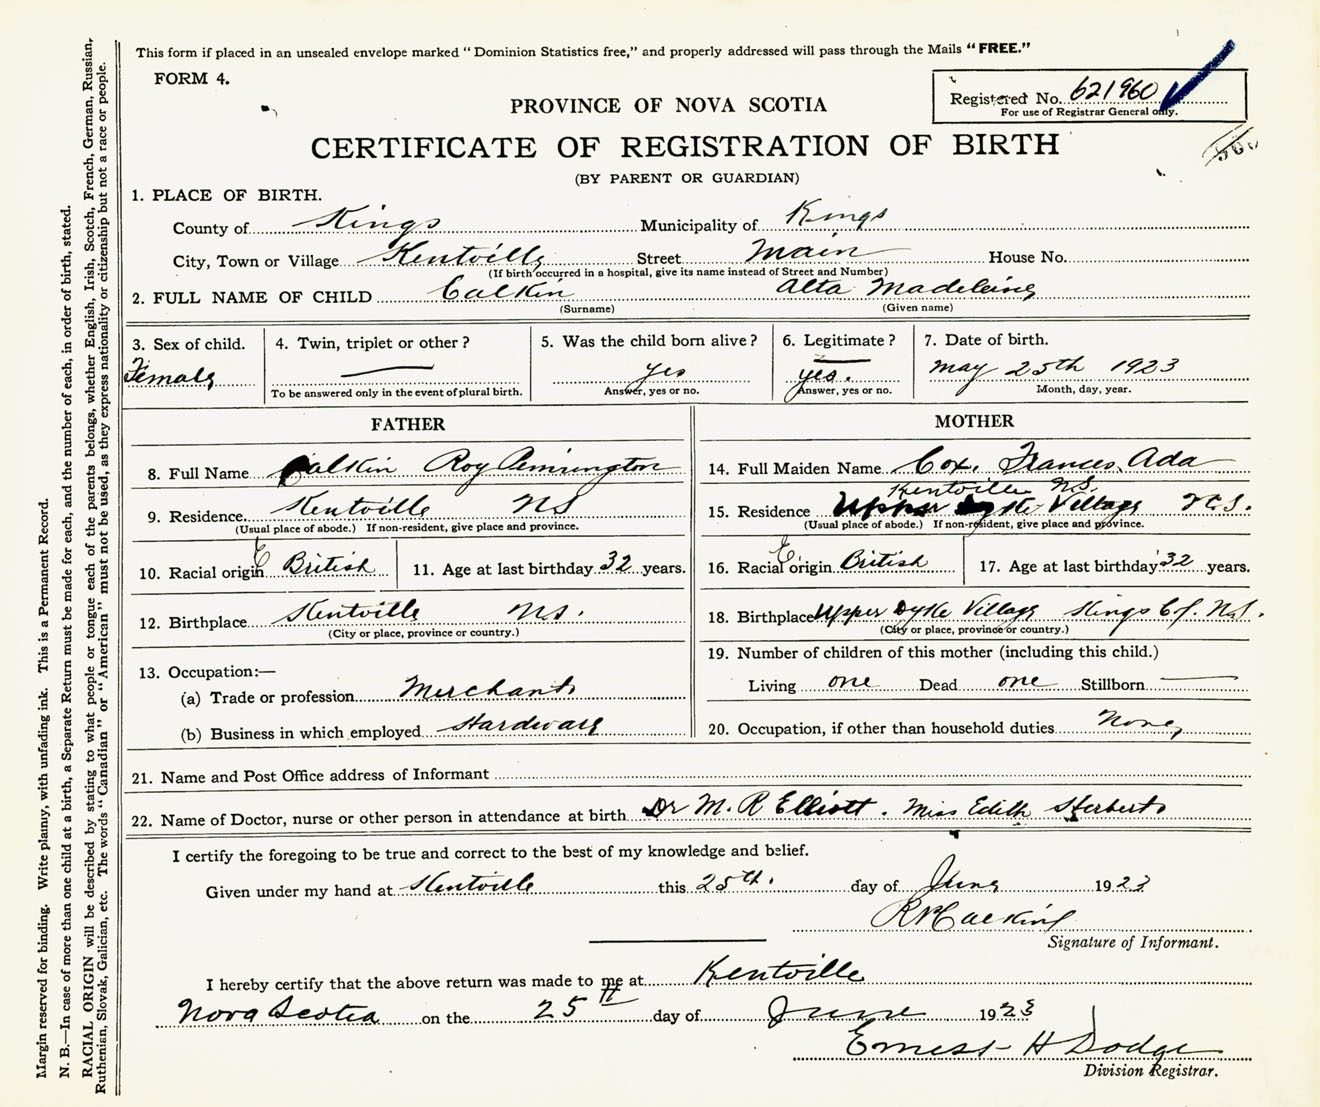 This form if placed in an unsealed envelope marked "Dominion Statistics free," and properly addressed will pass through the Mails "FREE."
FORM 4.
Registered No. 621960
For use of Registrar General only.
PROVINCE OF NOVA SCOTIA
CERTIFICATE OF REGISTRATION OF BIRTH
(BY PARENT OR GUARDIAN)
1. PLACE OF BIRTH.
County of Kings Municipality of Kings
City, Town or Village Kentville Street Main House No.
(If birth occurred in a hospital, give its name instead of Street and Number)
2. FULL NAME OF CHILD Calkin Alta Madeleine
(Surname) (Given name)
3. Sex of child. 4. Twin, triplet or other? 5. Was the child born alive? 6. Legitimate? 7. Date of birth.
Female yes yes. May 25th 1923
To be answered only in the event of plural birth. Answer, yes or no. Answer, yes or no. Month, day, year.
FATHER
8. Full Name Calkin Roy
9. Residence Kentville NS
(Usual place of abode.) If non-resident, give place and province.
10. Racial origin E British 11. Age at last birthday 32 years.
12. Birthplace Kentville N.S.
(City or place, province or country.)
13. Occupation:—
(a) Trade or profession Merchant
(b) Business in which employed Hardware
MOTHER
14. Full Maiden Name Cox. Frances Ada
Kentville N.S.
15. Residence Upper Dyke Village N.S.
(Usual place of abode.) If non-resident, give place and province.
16. Racial origin E British 17. Age at last birthday 32 years.
18. Birthplace Upper Dyke Village Kings Co. N.S.
(City or place, province or country.)
19. Number of children of this mother (including this child.)
Living one Dead one Stillborn
20. Occupation, if other than household duties None
21. Name and Post Office address of Informant
22. Name of Doctor, nurse or other person in attendance at birth Dr M. R Elliott. Miss Edith Herbert
I certify the foregoing to be true and correct to the best of my knowledge and belief.
Given under my hand at Kentville this 25th. day of June 1923
R P Calkin
Signature of Informant.
I hereby certify that the above return was made to me at Kentville
Nova Scotia on the 25th day of June 1923
Ernest H Dodge
Division Registrar.
Margin reserved for binding. Write plainly, with unfading ink. This is a Permanent Record.
N. B.—In case of more than one child at a birth, a Separate Return must be made for each, and the number of each, in order of birth, stated.
RACIAL ORIGIN will be described by stating to what people or tongue each of the parents belongs, whether English, Irish, Scotch, French, German, Russian,
Ruthenian, Slovak, Galician, etc. The words "Canadian" or "American" must not be used, as they express nationality or citizenship but not a race or people.